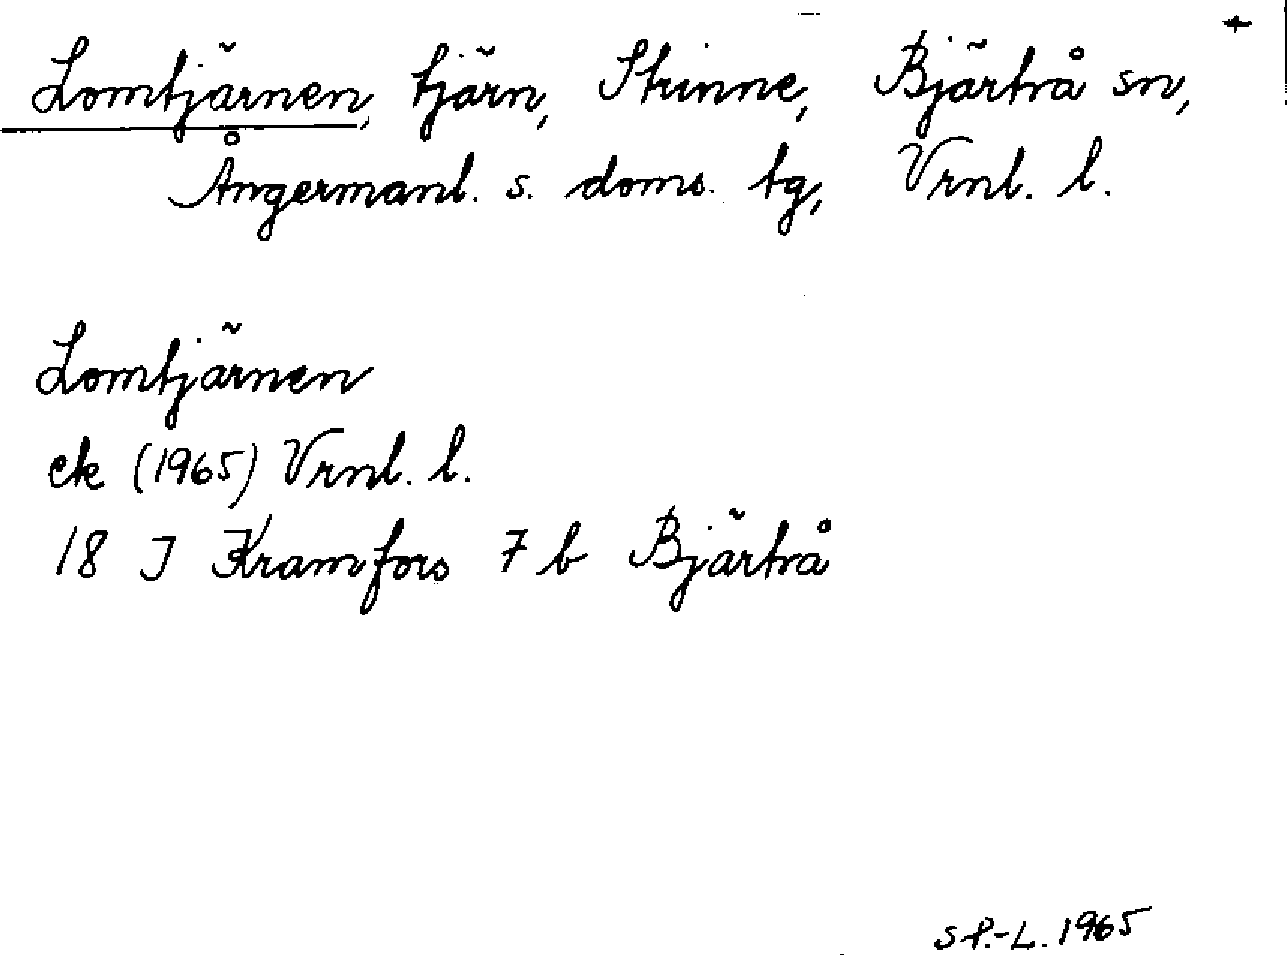 +
Lomtjärnen, tjärn, Strinne, Bjärtrå sn,
Ångermanl. s. doms. tg, Vrnl. l.
Lomtjärnen
ek (1965) Vrnl. l.
18 I Kramfors 7 b Bjärtrå
SP.-L. 1965